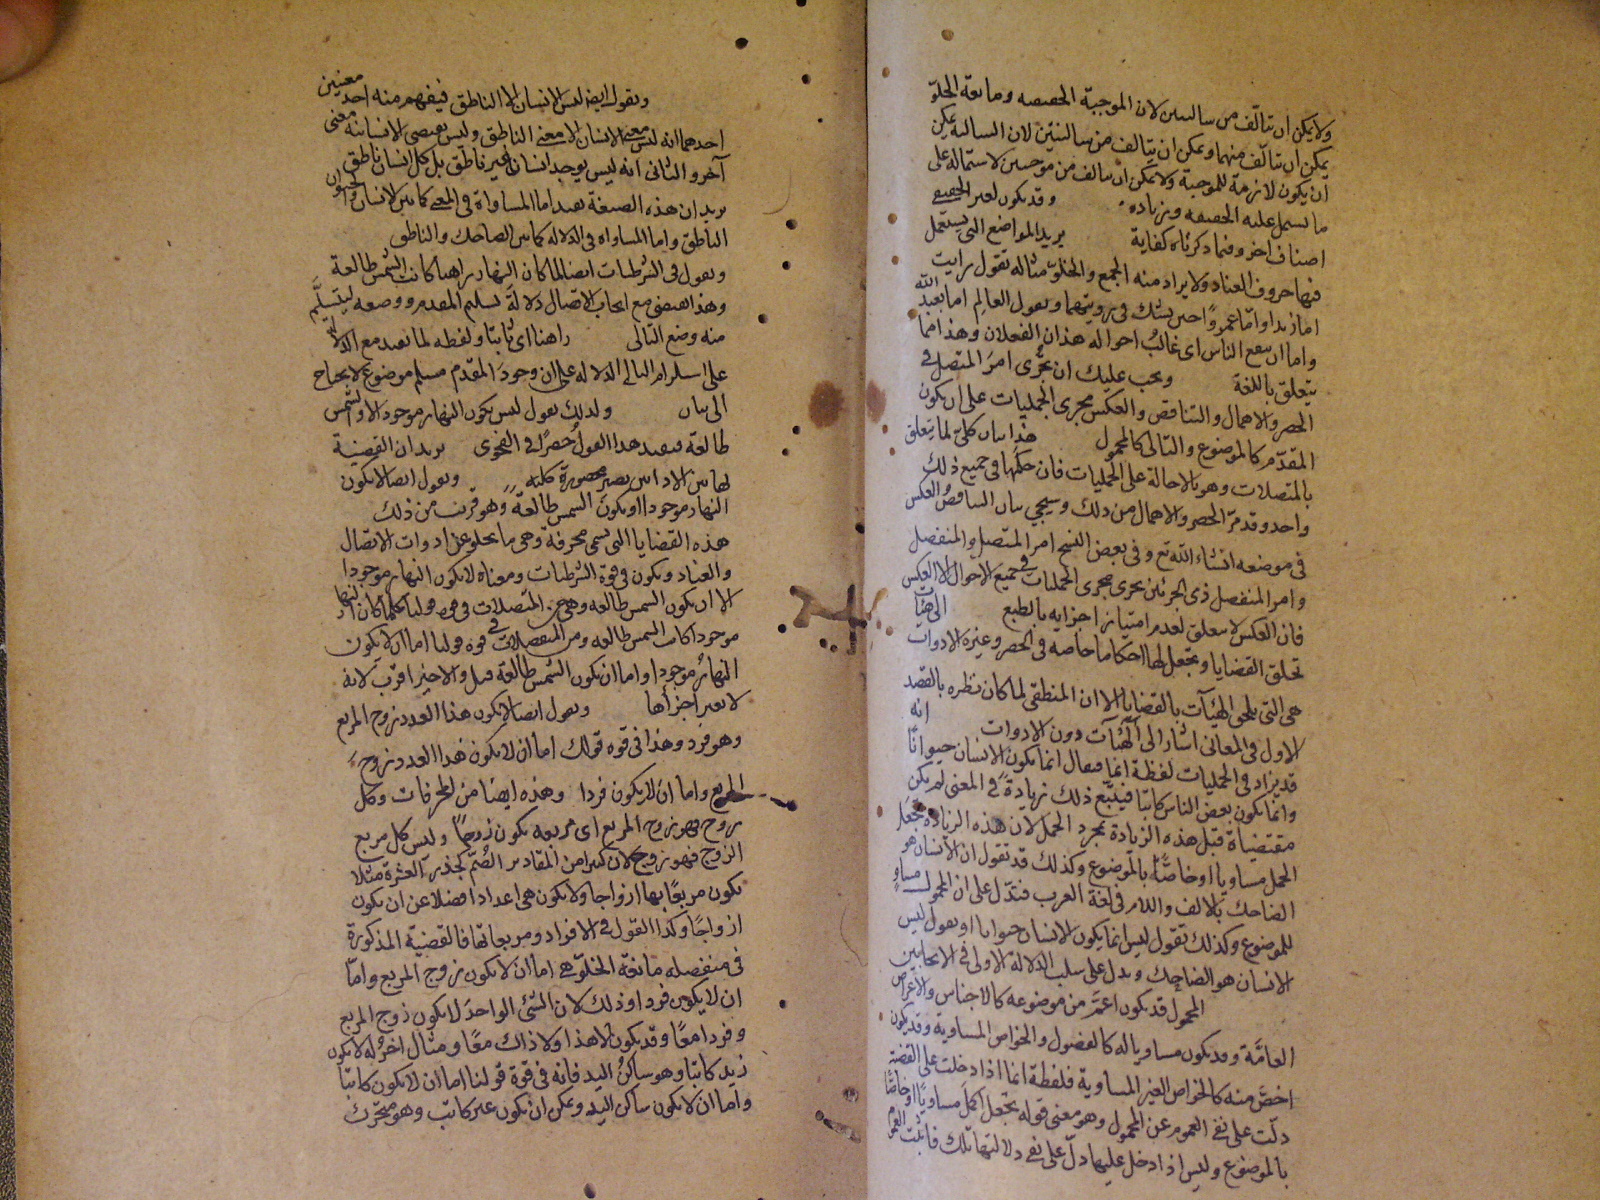 ولا يمكن ان تتألف من سالبتين لان الموجبة الحقيقيه ومانعة الخلوّ
يمكن ان تتألف منهما ويمكن ان يتالف من سالبتين لان السالبة يمكن
ان يكون لازمة للموجبة ولا يمكن ان يتالف من موجبتين لاشتماله على
ما يشتمل عليه الحقيقيه وزياده وقد يكون لغير الحقيقي
اصناف اخر وفيما ذكرناه كفاية يريد المواضع التي يستعمل
فيها حروف العناد ولا يراد منه الجمع والخلوّ مثاله تقول رايت
اما زيدا واما عمروًا حين يشك في رويتهما ويقول العالم اما يعبد الله
واما ان ينفع الناس اى غالب احواله هذان الفعلان وهذا مما
يتعلق باللغة ويجب عليك ان تجرى امر المتصل في
الحصر والاهمال والتناقض والعكس مجرى الحمليات على ان يكون
المقدّم كالموضوع والتالى كالمحمول هذا بيان كلىّ لما يتعلق
بالمتصلات وهو بالاحالة على الحمليات فان حكمها في جميع ذلك
واحد وقد مرّ الحصر والاهمال من ذلك وسيجي بيان التناقض والعكس
في موضعه انشاء الله تع وفي بعض النسخ امر المتصل والمنفصل
وامر المنفصل ذى الجزئين يجرى مجرى الحمليات في جميع الاحوال الا العكس
فان العكس لا يتعلق لعدم امتياز اجزايه بالطبع الهيئات
تلحق القضايا وتجعل لها احكاما خاصه في الحصر وغيره الادوات
هي التي تلحق الهيآت بالقضايا الا ان المنطقى لما كان نظره بالقصد
الاول في المعانى اشار الى الهيآت دون الادوات انه
قد يزاد في الحمليات لفظة انما فيقال انما يكون الانسان حيوانًا
وانما يكون بعض الناس كاتبا فيتبع ذلك زيادةً في المعنى لم يكن
مقتضاة قبل هذه الزيادة بمجرد الحمل لان هذه الزياده تجعل
الحمل مساويا او خاصّا بالموضوع وكذلك قد تقول ان الانسان هو
الضاحك بالالف واللام في لغة العرب فتدلّ على ان المحمول مساوٍ
للموضوع وكذلك تقول ليس انما يكون الانسان حيوانا او يقول ليس
الانسان هو الضاحك ويدل على سلب الدلالة الاولى في الايجابين
المحمول قد يكون اعمّ من موضوعه كالاجناس والاعراض
العامّة وقد يكون مساويا له كالفصول والخواص المساوية وقد يكون
اخصّ منه كالخواص الغير المساوية فلفظة انما اذا دخلت على القضية
دلّت على نفي العموم عن المحمول وهو معنى قوله تجعل الحمل مساويًا او خاصًّا
بالموضوع وليس اذا دخل عليها دلّ على نفي دلالتها تلك فاثبت العموم
ويقول ايضا ليس الانسان الا الناطق فيفهم منه احد معنيين
احدهما انه ليس معنى الانسان الا معنى الناطق وليس يقتضى الانسانية معنى
آخر والثانى انه ليس يوجد انسان غير ناطق بل كل انسان ناطق
يريد ان هذه الصيغة تفيد اما المساواة في المعنى كما بين الانسان والحيوان
الناطق واما المساواة في الدلاله كما بين الضاحك والناطق
ويقول في الشرطيات ايضا لما كان النهار راهنا كانت الشمس طالعة
وهذا يقتضى مع ايجاب الاتصال دلالة تسليم المقدم ووضعه ليتسلّم
منه وضع التالى راهنا اى ثابتا ولفظه لما تفيد مع الدلالة
على استلزام التالى الدلالة على ان وجود المقدّم مسلم موضوع لا يحتاج
الى بيان ولذلك يقول ليس يكون النهار موجودا الا والشمس
طالعة فيفيد هذا القول حصرًا في الفحوى يريد ان القضية
لهاتين الاداتين تصير محصورة كلية ويقول ايضا لا يكون
النهار موجودا او يكون الشمس طالعةً وهو قريب من ذلك
هذه القضايا التي تسمى محرفة وهي ما يخلو عن ادوات الاتصال
والعناد ويكون في قوة الشرطيات ومعناه لا يكون النهار موجودا
الا ان يكون الشمس طالعه وهي من المتصلات في قوة قولنا كلما كان النهار
موجودا كانت الشمس طالعه ومن المنفصلات في قوه قولنا اما ان لا يكون
النهار موجودا واما ان يكون الشمس طالعة قيل والاخير اقرب لانه
لا يغير اجزاها ويقول ايضا لا يكون هذا العدد زوج المربع
وهو فرد وهذا في قوه قولك اما ان لا يكون هذا العدد زوج
المربع واما ان لا يكون فردا وهذه ايضا من المحرفات وكل
زوج فهو زوج المربع اى مربعه يكون زوجًا وليس كل مربع
الزوج فهو زوج لان كثيرا من المقادير الصُمّ كجذر العشرة مثلا
يكون مربعًاتها ازواجا ولا يكون هي اعدادا فضلا عن ان يكون
ازواجًا وكذا القول في الافراد ومربعاتها فالقضية المذكورة
في منفصله مانعة الخلوّ هي اما ان لا يكون زوج المربع وامّا
ان لا يكون فردا وذلك لان الشئ الواحد لا يكون زوج المربع
وفردا معًا وقد يكون لا هذا ولا ذاك معًا ومثال اخر له لا يكون
زيد كاتبا وهو ساكن اليد فانه في قوة قولنا اما ان لا يكون كاتبا
واما ان لا يكون ساكن اليد ويمكن ان يكون غير كاتب وهو متحرك